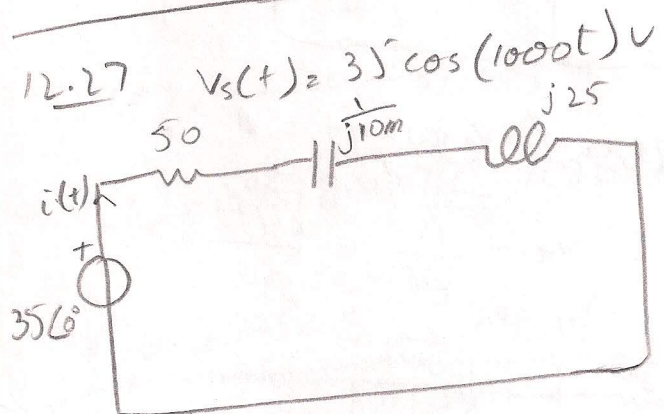 12.27 Vs(t) = 35 cos (1000t) v
50
1/j10m
j25
i(t)
+
35∠0°